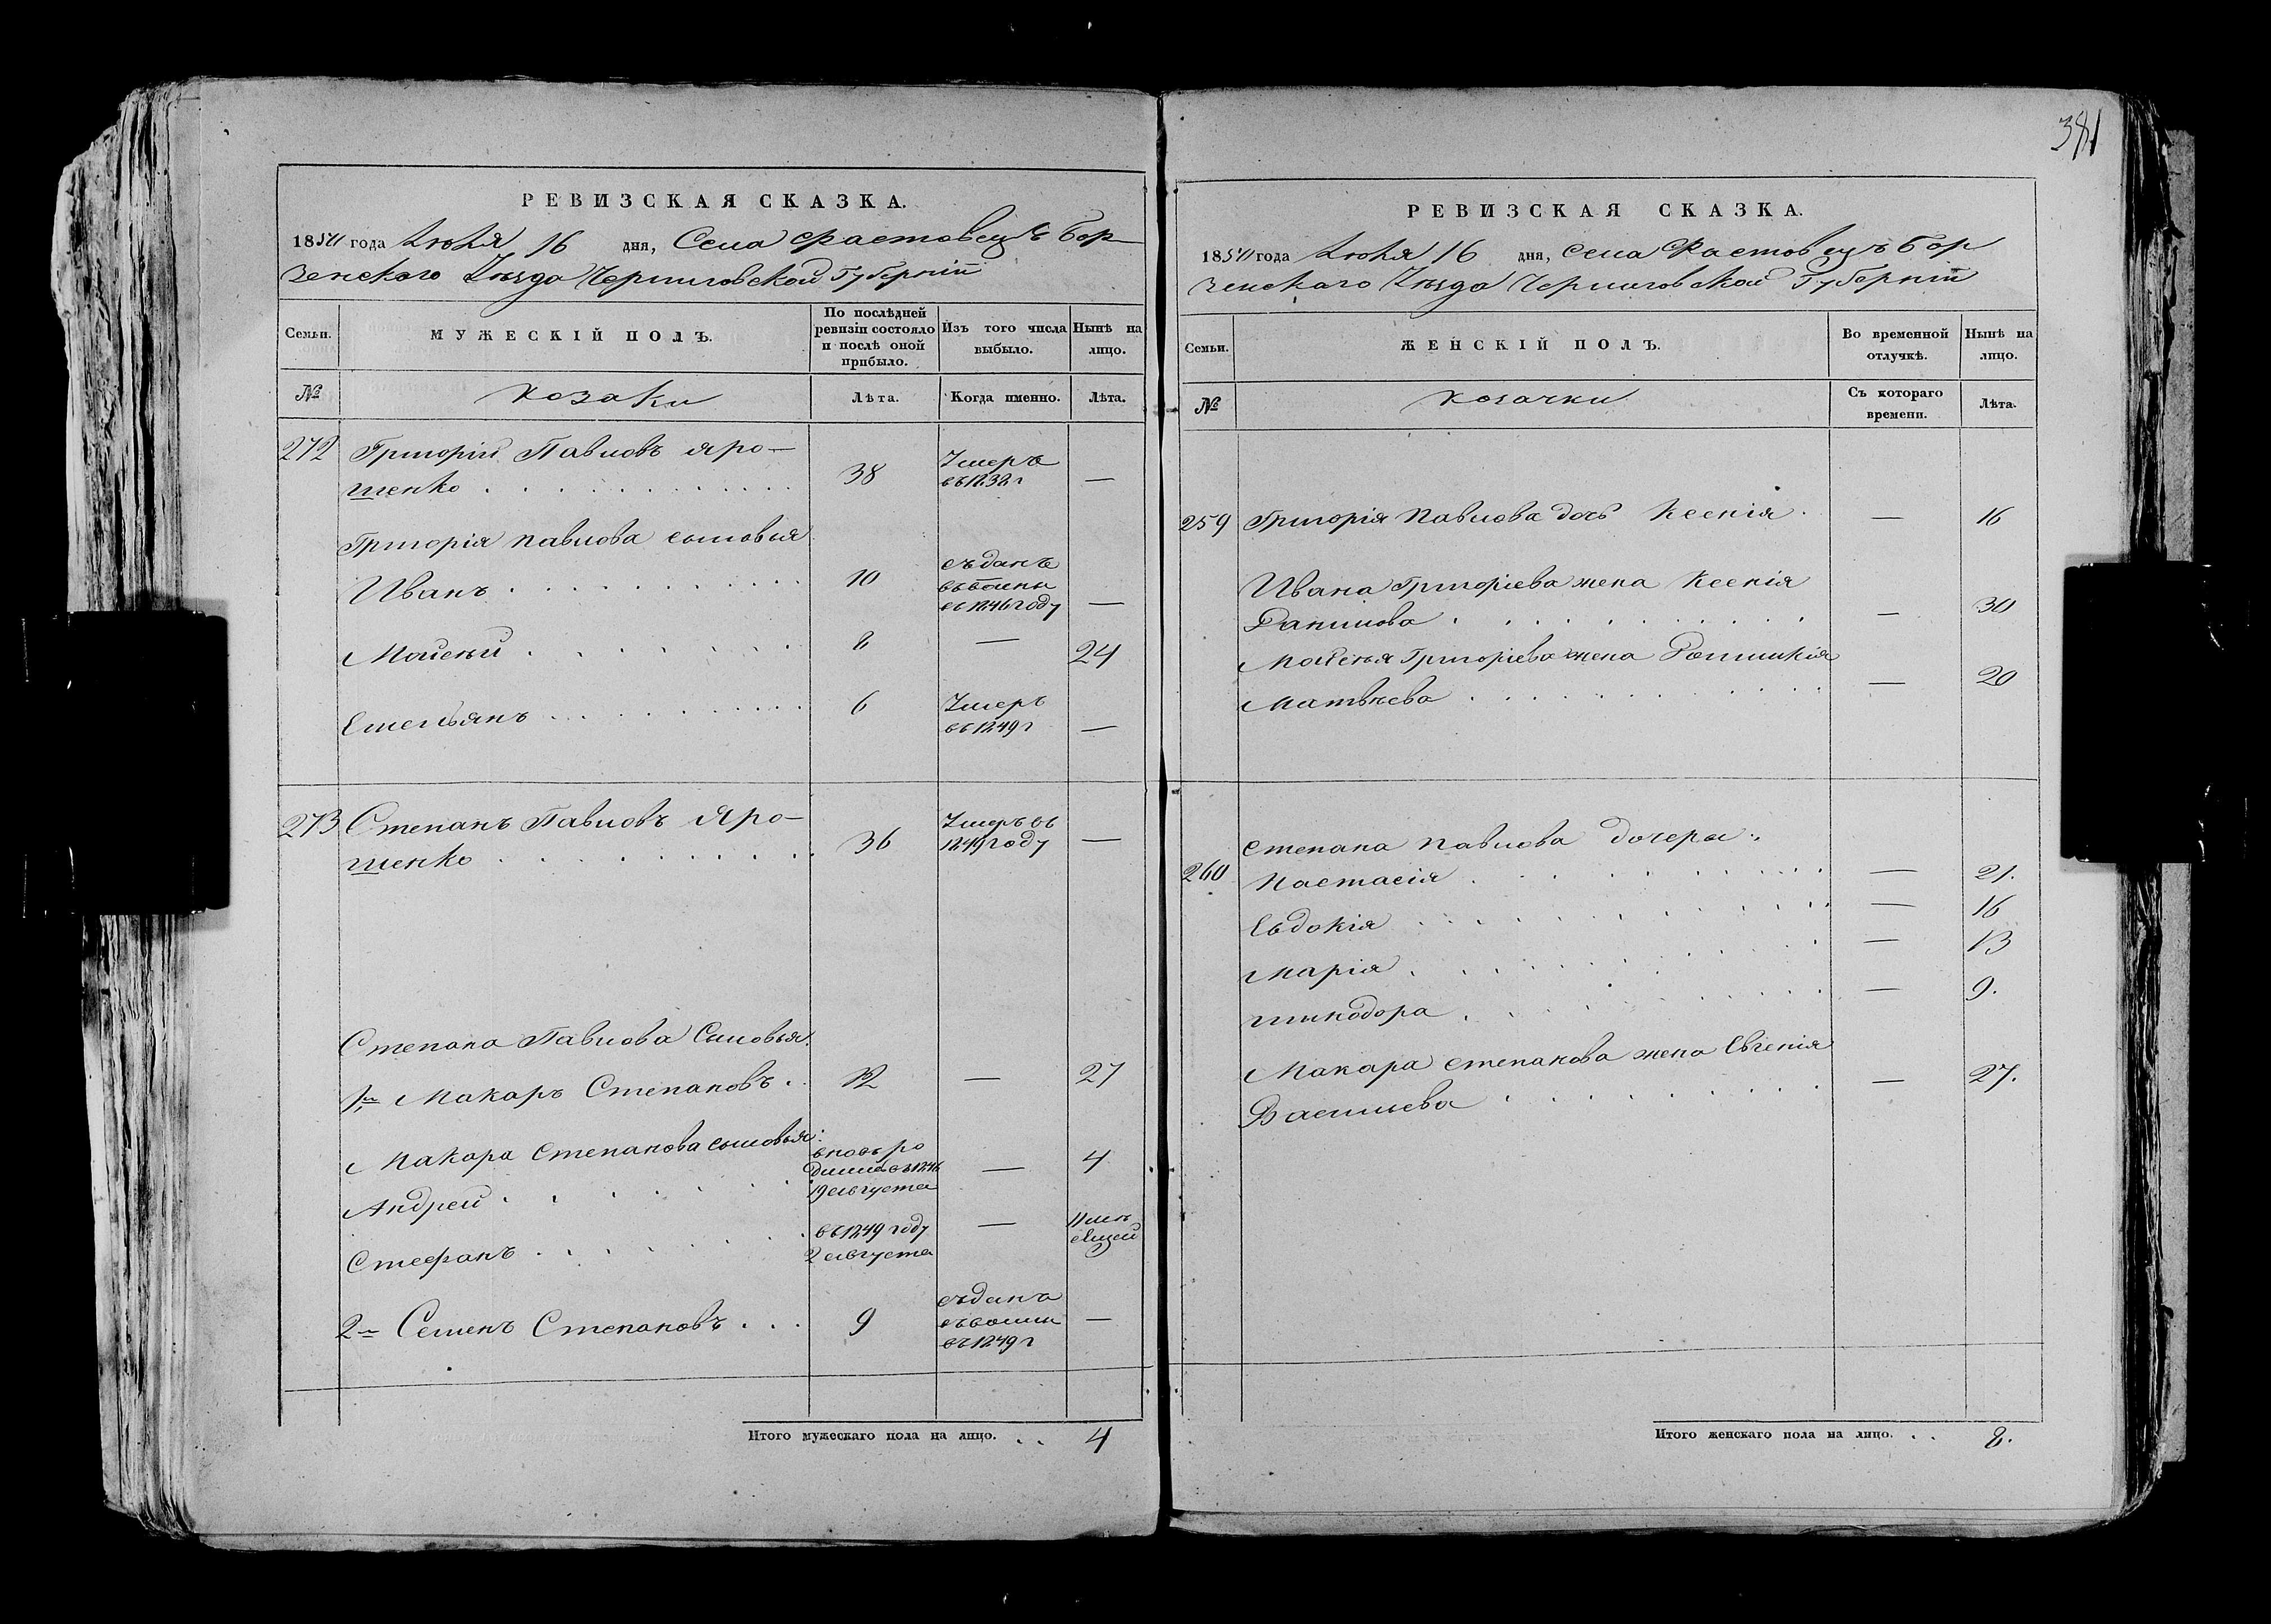 381
РЕВИЗСКАЯ СКАЗКА.
1850 года Июля 16 дня, Села Фастовецъ Бор-
зенского Уѣзда Черниговской Губерніи
Семьи.
МУЖЕСКІЙ ПОЛЪ.
По послѣдней ревизіи состояло и послѣ оной прибыло.
Изъ того числа выбыло.
Нынѣ на лицо.
№ козаки Лѣта. Когда именно. Лѣта.
272 Григорій Павловъ Яро-
шенко 38 Умеръ —
Григорія Павлова сыновья
Иванъ 10 въ 1846 году —
Моисѣй 8 — 24
Емельянъ 6 Умеръ въ 1849 г —
273 Степанъ Павловъ Яро-
шенко 36 Умеръ въ 1849 году —
Степана Павлова Сыновья
1й Макаръ Степановъ 12 — 27
Макара Степанова сыновья:
Андрей вновь родился въ 1846 19 августа — 4
Стефанъ въ 1849 году 2 августа —
2й Семенъ Степановъ 9 въ 1849 г —
Итого мужескаго пола на лицо. 4
РЕВИЗСКАЯ СКАЗКА.
1850 года Июля 16 дня, Села Фастовецъ Бор
зенскаго Уѣзда Черниговской Губерніи
Семьи.
ЖЕНСКІЙ ПОЛЪ.
Во временной отлучкѣ.
Нынѣ на лицо.
№ козачки Съ котораго времени. Лѣта.
259 Григорія Павлова дочь Ксенія — 16
Ивана Григорієва жена Ксенія
Данилова — 30
Моисѣя Григорієва жена
Матвѣева — 20
Степана Павлова дочеры:
260 Настасія — 21.
Евдокія — 16
Марія — 13
— 9.
Макара Степанова жена Евгенія
Васильева — 27.
Итого женскаго пола на лицо. 8.